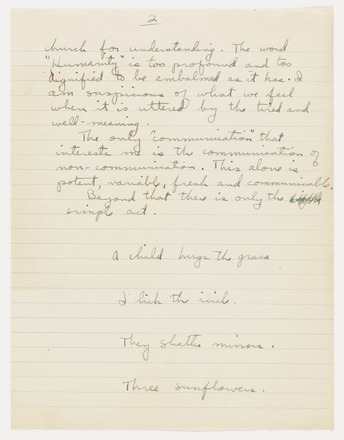 2
church for understanding. The word
"Humanity" is too profound and too
dignified to be embalmed as it has. I
am suspicious of what we feel
when it is uttered by the tired and
well-meaning.
The only "communication" that
interests me is the communication of
non-communication. This alone is
potent, variable, fresh and communicable.
Beyond that there is only the
simple act.
A child hugs the grass
I lick the icicle.
They shatter mirrors.
Three sunflowers.